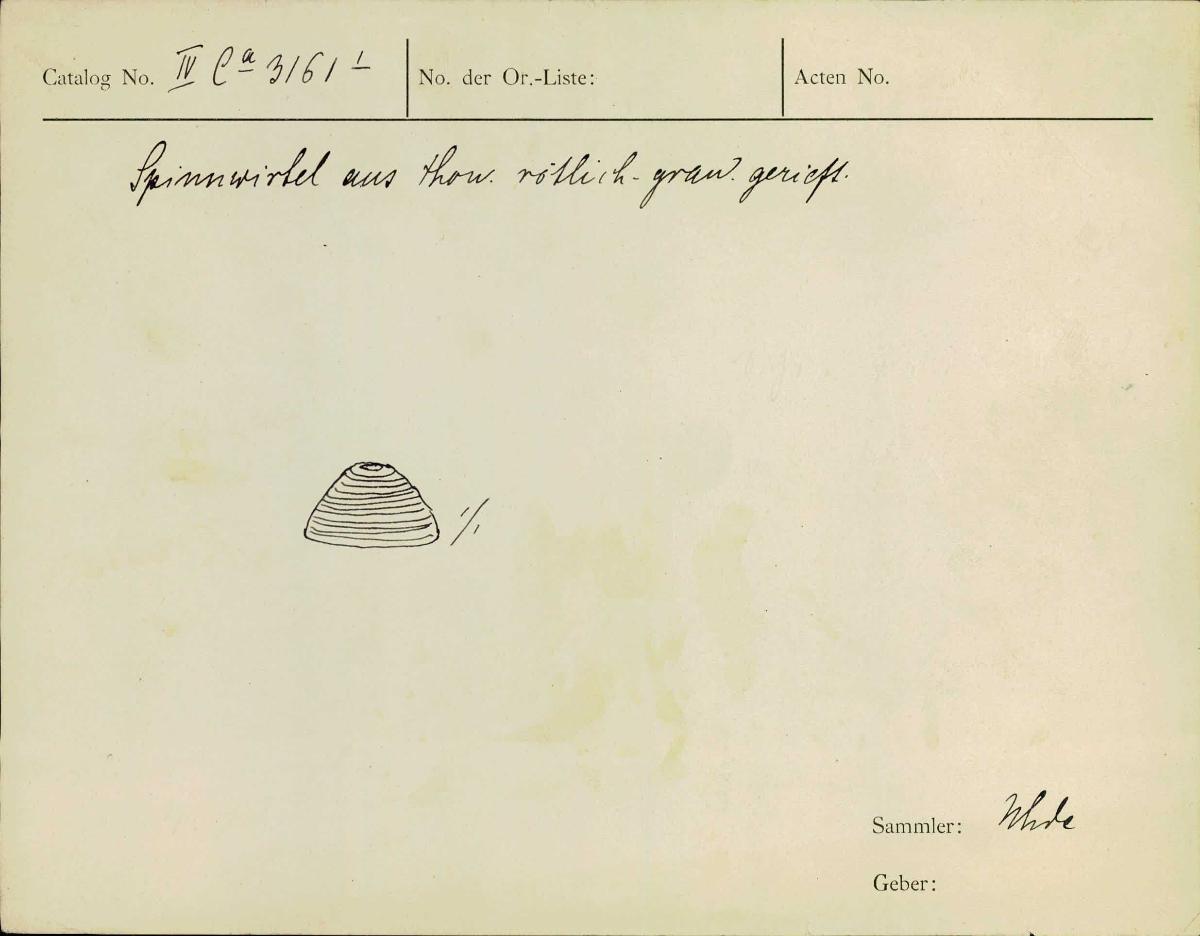 Catalog No. IV Ca 3161 1 No. der Or.-Liste: Acten No.
Spinnwirtel aus Thon. rötlich-grau. gerieft.
1/1
Sammler: Uhde
Geber: